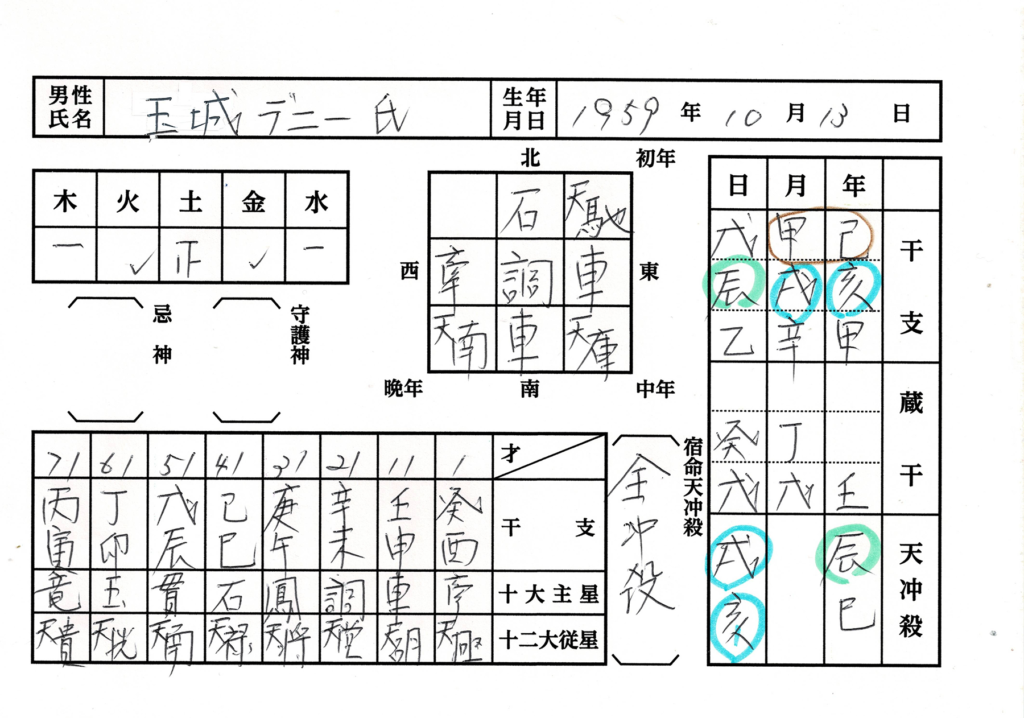 男性氏名 玉城デニー氏 生年月日 1959年10月13日
木 火 土 金 水
一 ✓ 正 ✓ 一
忌神
守護神
北 初年
西 東
晩年 南 中年
石 天馳
牽 調 車
天南 車 天庫
日 月 年
戊 甲 己 干
辰 戌 亥 支
乙 辛 甲
癸 丁 蔵
戊 戊 壬 干
戌 辰 天冲殺
亥 巳
宿命天冲殺
全冲殺
71 61 51 41 31 21 11 1 才
丙 丁 戊 己 庚 辛 壬 癸 干支
寅 卯 辰 巳 午 未 申 酉
竜 玉 貫 石 鳳 調 車 牽 十大主星
天貴 天恍 天南 天禄 天将 天堂 天胡 天極 十二大従星